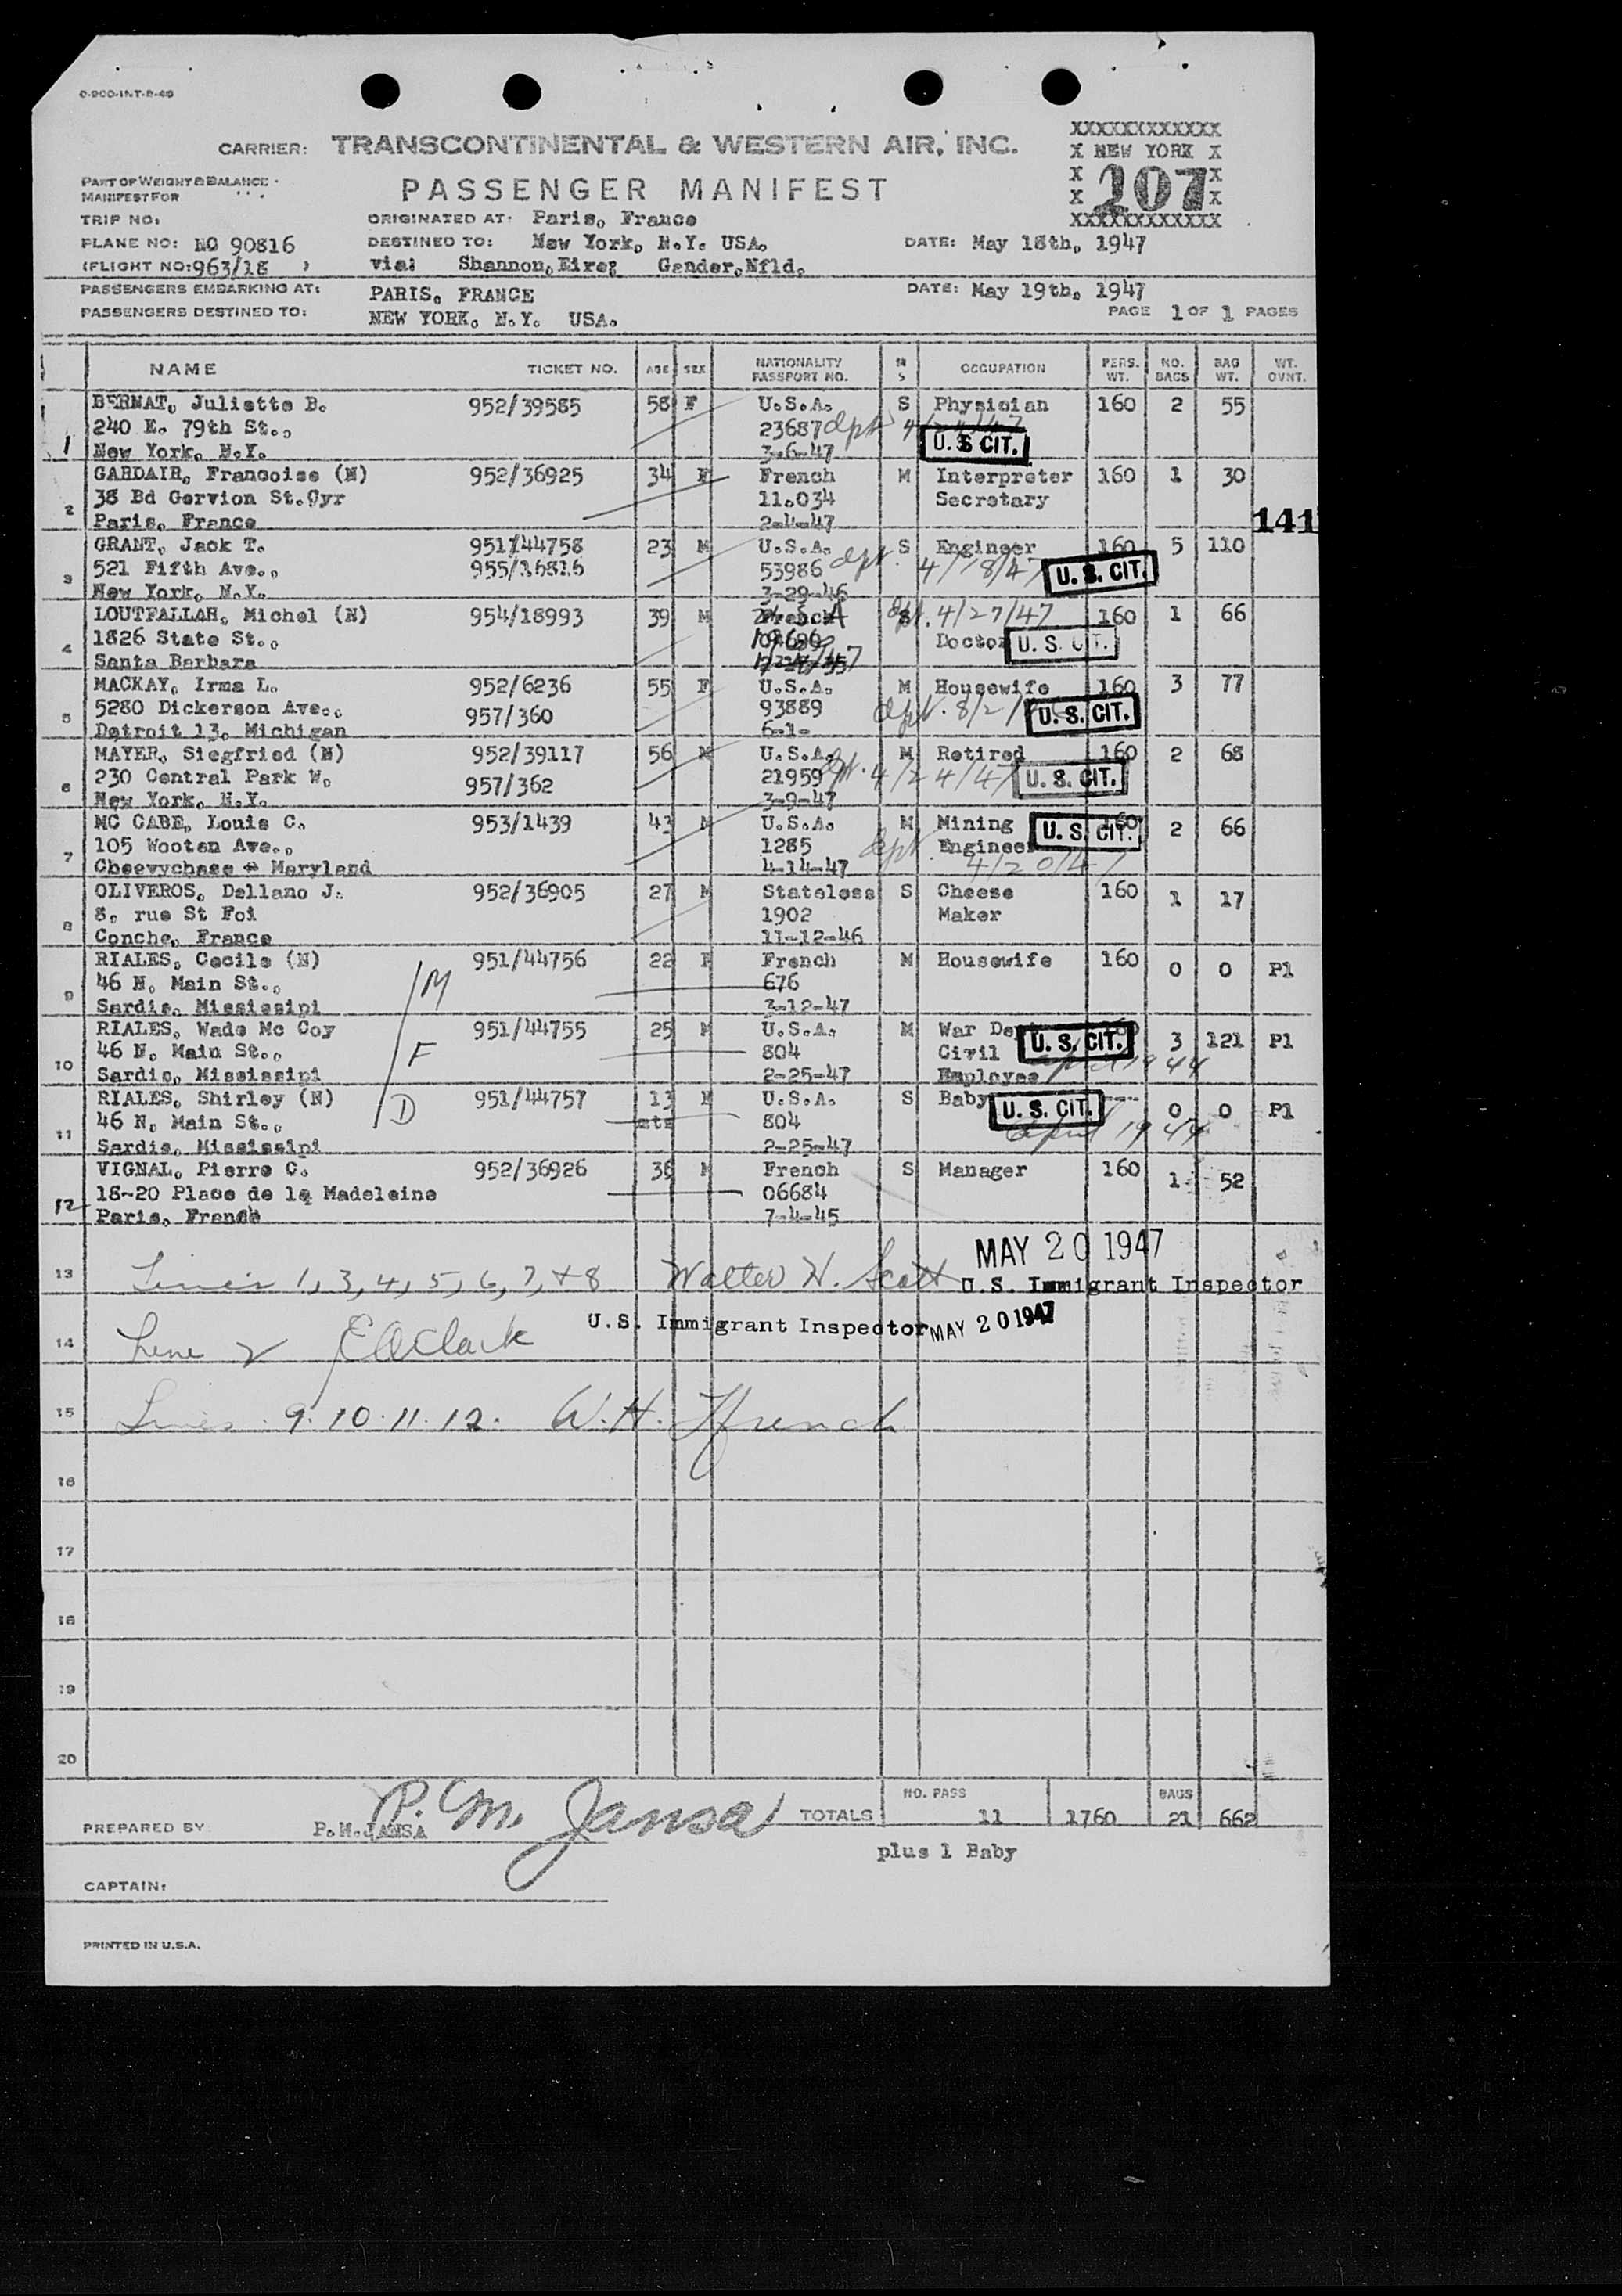 0-900-INT-2-46
CARRIER: TRANSCONTINENTAL & WESTERN AIR, INC.
XXXXXXXXXXXX
X NEW YORK X
X 207 X
X X
XXXXXXXXXXXX
PART OF WEIGHT & BALANCE
MANIFEST FOR
PASSENGER MANIFEST
TRIP NO:
ORIGINATED AT: Paris, France
PLANE NO: NC 90816
DESTINED TO: New York, N.Y. USA.
DATE: May 18th, 1947
(FLIGHT NO: 963/18 )
via: Shannon, Eire; Gander, Nfld.
PASSENGERS EMBARKING AT: PARIS, FRANCE
DATE: May 19th, 1947
PASSENGERS DESTINED TO: NEW YORK, N.Y. USA.
PAGE 1 OF 1 PAGES
NAME TICKET NO. AGE SEX NATIONALITY PASSPORT NO. M S OCCUPATION PERS. WT. NO. BAGS BAG WT. WT. OVNT.
BERNAT, Juliette B. 952/39585 58 F U.S.A. S Physician 160 2 55
240 E. 79th St., 23687 dpt
1 New York, N.Y. 3-6-47 U. S CIT.
GARDAIR, Francoise (N) 952/36925 34 F French M Interpreter 160 1 30
38 Bd Gorvion St.Cyr 11.034 Secretary
2 Paris, France 2-4-47
141
GRANT, Jack T. 951/44758 23 M U.S.A. S Engineer 160 5 110
521 Fifth Ave., 955/16816 53986 dpt. 4/18/47 U. S. CIT.
3 New York, N.Y. 3-29-46
LOUTFALLAH, Michel (N) 954/18993 39 M French S dpt. 4/27/47 160 1 66
1826 State St., Doctor U. S. CIT.
4 Santa Barbara
MACKAY, Irma L. 952/6236 55 F U.S.A. M Housewife 160 3 77
5280 Dickerson Ave., 957/360 93889 dpt. 8/2/ U. S. CIT.
5 Detroit 13, Michigan 6-1-
MAYER, Siegfried (N) 952/39117 56 M U.S.A. M Retired 160 2 68
230 Central Park W. 957/362 21959 dpt. 4/24/47 U. S. CIT.
6 New York, N.Y. 3-9-47
MC CABE, Louis C. 953/1439 43 M U.S.A. M Mining 160 2 66
105 Wooten Ave., 1285 dpt. Engineer U. S. CIT.
7 Cheevychase - Maryland 4-14-47 4/20/47
OLIVEROS, Dellano J. 952/36905 27 M Stateless S Cheese 160 1 17
8, rue St Foi 1902 Maker
8 Conche, France 11-12-46
RIALES, Cecile (N) 951/44756 22 F French M Housewife 160 0 0 Pl
46 N. Main St., M 676
9 Sardis, Mississipi 3-12-47
RIALES, Wade Mc Coy 951/44755 25 M U.S.A. M War Dep 160 3 121 Pl
46 N. Main St., F 804 Civil U. S. CIT.
10 Sardis, Mississipi 2-25-47 Employee April 1944
RIALES, Shirley (N) 951/44757 13 F U.S.A. S Baby ---- 0 0 Pl
46 N. Main St., D mts 804 U. S. CIT.
11 Sardis, Mississipi 2-25-47 April 1944
VIGNAL, Pierre C. 952/36926 38 M French S Manager 160 1 52
18-20 Place de la Madeleine 06684
12 Paris, French 7-4-45
MAY 20 1947
13 Lines 1, 3, 4, 5, 6, 7, + 8 Walter H. Scott U.S. Immigrant Inspector
U.S. Immigrant Inspector MAY 20 1947
14 Line 2 E A Clark
15 Lines 9. 10. 11. 12. W. H. Ffrench
16
17
18
19
20
NO. PASS BAGS
PREPARED BY P.M.JANSA P. M. Jansa TOTALS 11 1760 21 662
plus 1 Baby
CAPTAIN:
PRINTED IN U.S.A.